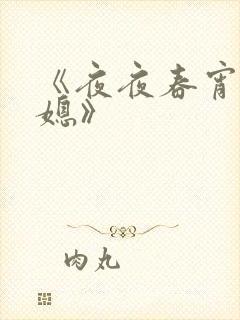 《夜夜春宵
媳》
肉丸